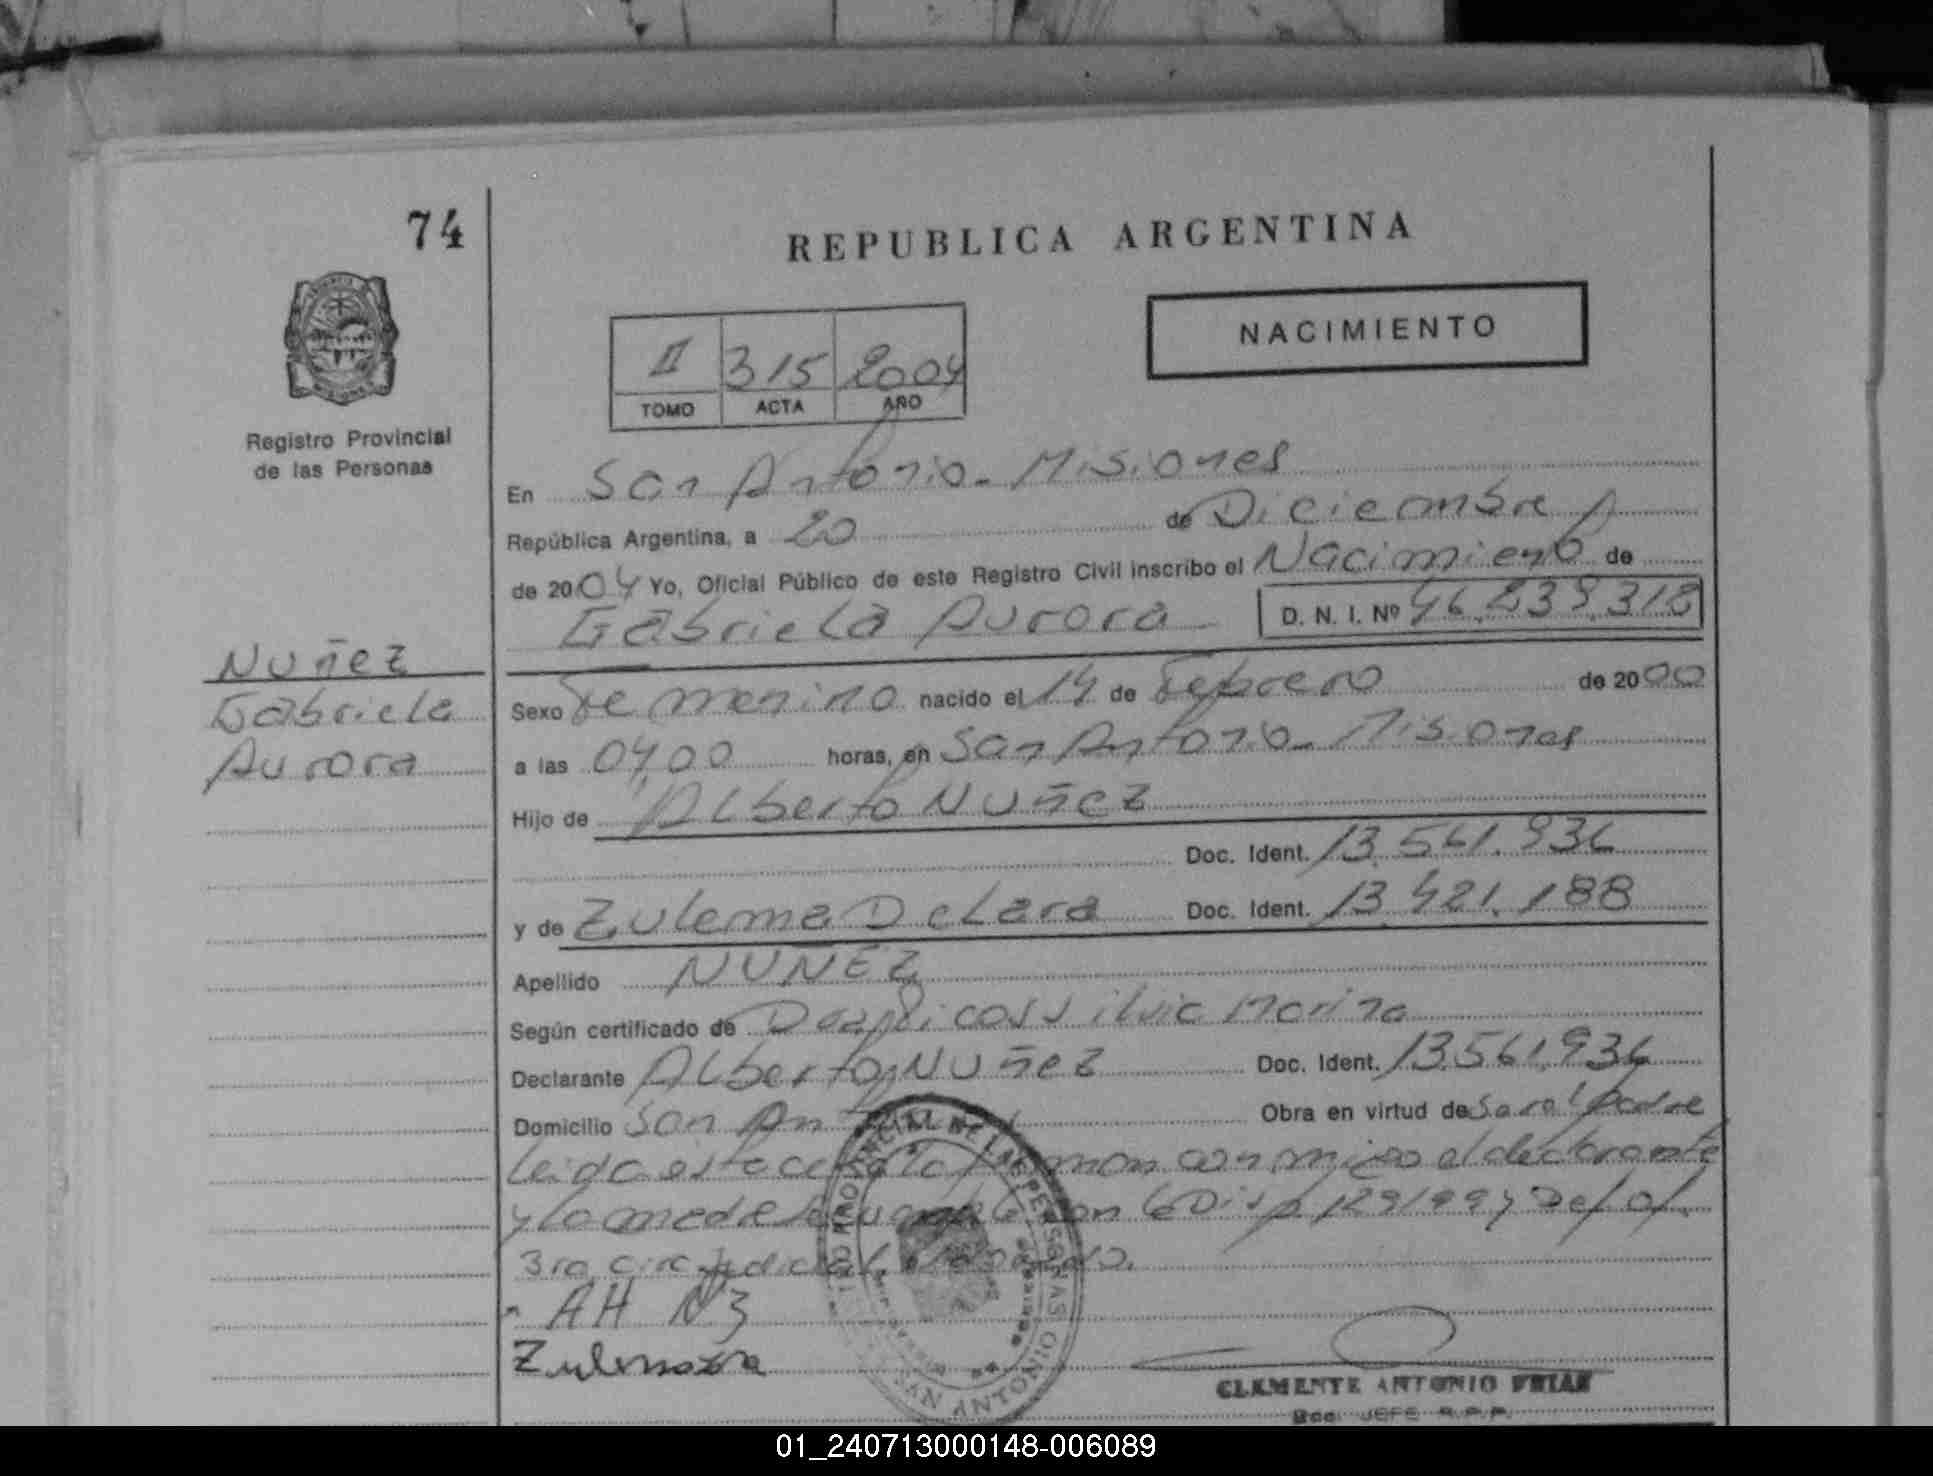 74
REPUBLICA ARGENTINA
NACIMIENTO
II 315 2004
TOMO ACTA AÑO
Registro Provincial
de las Personas
En San Antonio - Misiones
República Argentina, a 20 de Diciembre
de 2004 Yo, Oficial Público de este Registro Civil inscribo el Nacimiento de
Gabriela Aurora - D. N. I. Nº 46.839.318
Nuñez
Gabriela
Aurora
Sexo Femenino nacido el 14 de Febrero de 2000
a las 04,00 horas, en San Antonio - Misiones
Hijo de Alberto Nuñez
Doc. Ident. 13.561.936
y de Zulema De Lara Doc. Ident. 13.421.188
Apellido NUÑEZ
Según certificado de Silvia Marina
Declarante Alberto Nuñez Doc. Ident. 13.561.936
Domicilio San Obra en virtud de Ser el Padre
Leida el acta la firman conmigo el declarante
y la madre 129/99 y Def. Of.
3ra Circ. Judicial
AH N3
Zulema
CLEMENTE ANTONIO FRIAS
JEFE R.P.P.
01_240713000148-006089